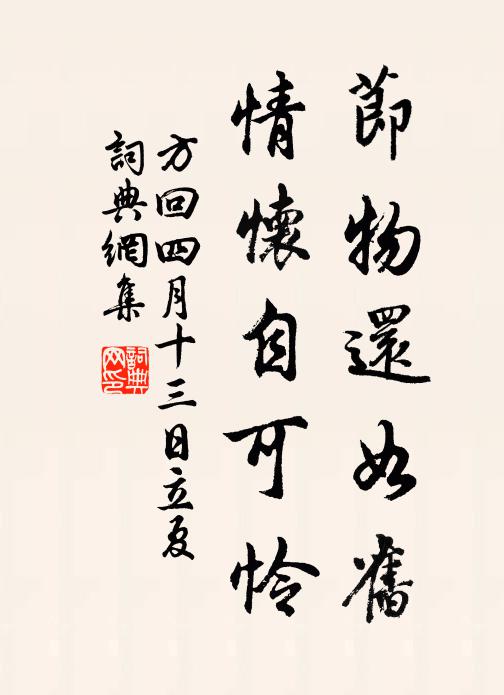 節物還如舊
情懷自可怜
方回四月十三日立夏
詞典網集
詞典网印